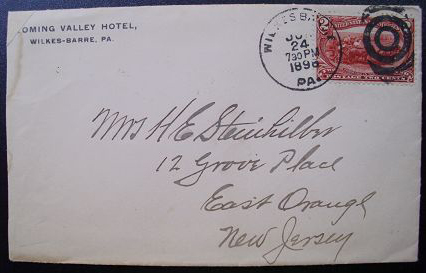 OMING VALLEY HOTEL,
WILKES-BARRE, PA.
WILKESBA
JUN
24
730PM
1898
PA.
POSTAGE TWO CENTS
Mrs H E Steinhilber
12 Grove Place
East Orange
New Jersey